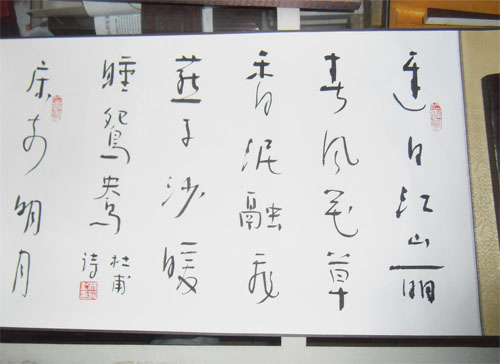 遲日江山丽
春风花草
香泥融飛
燕子沙暖
睡鴛鴦
杜甫
詩
床前明月